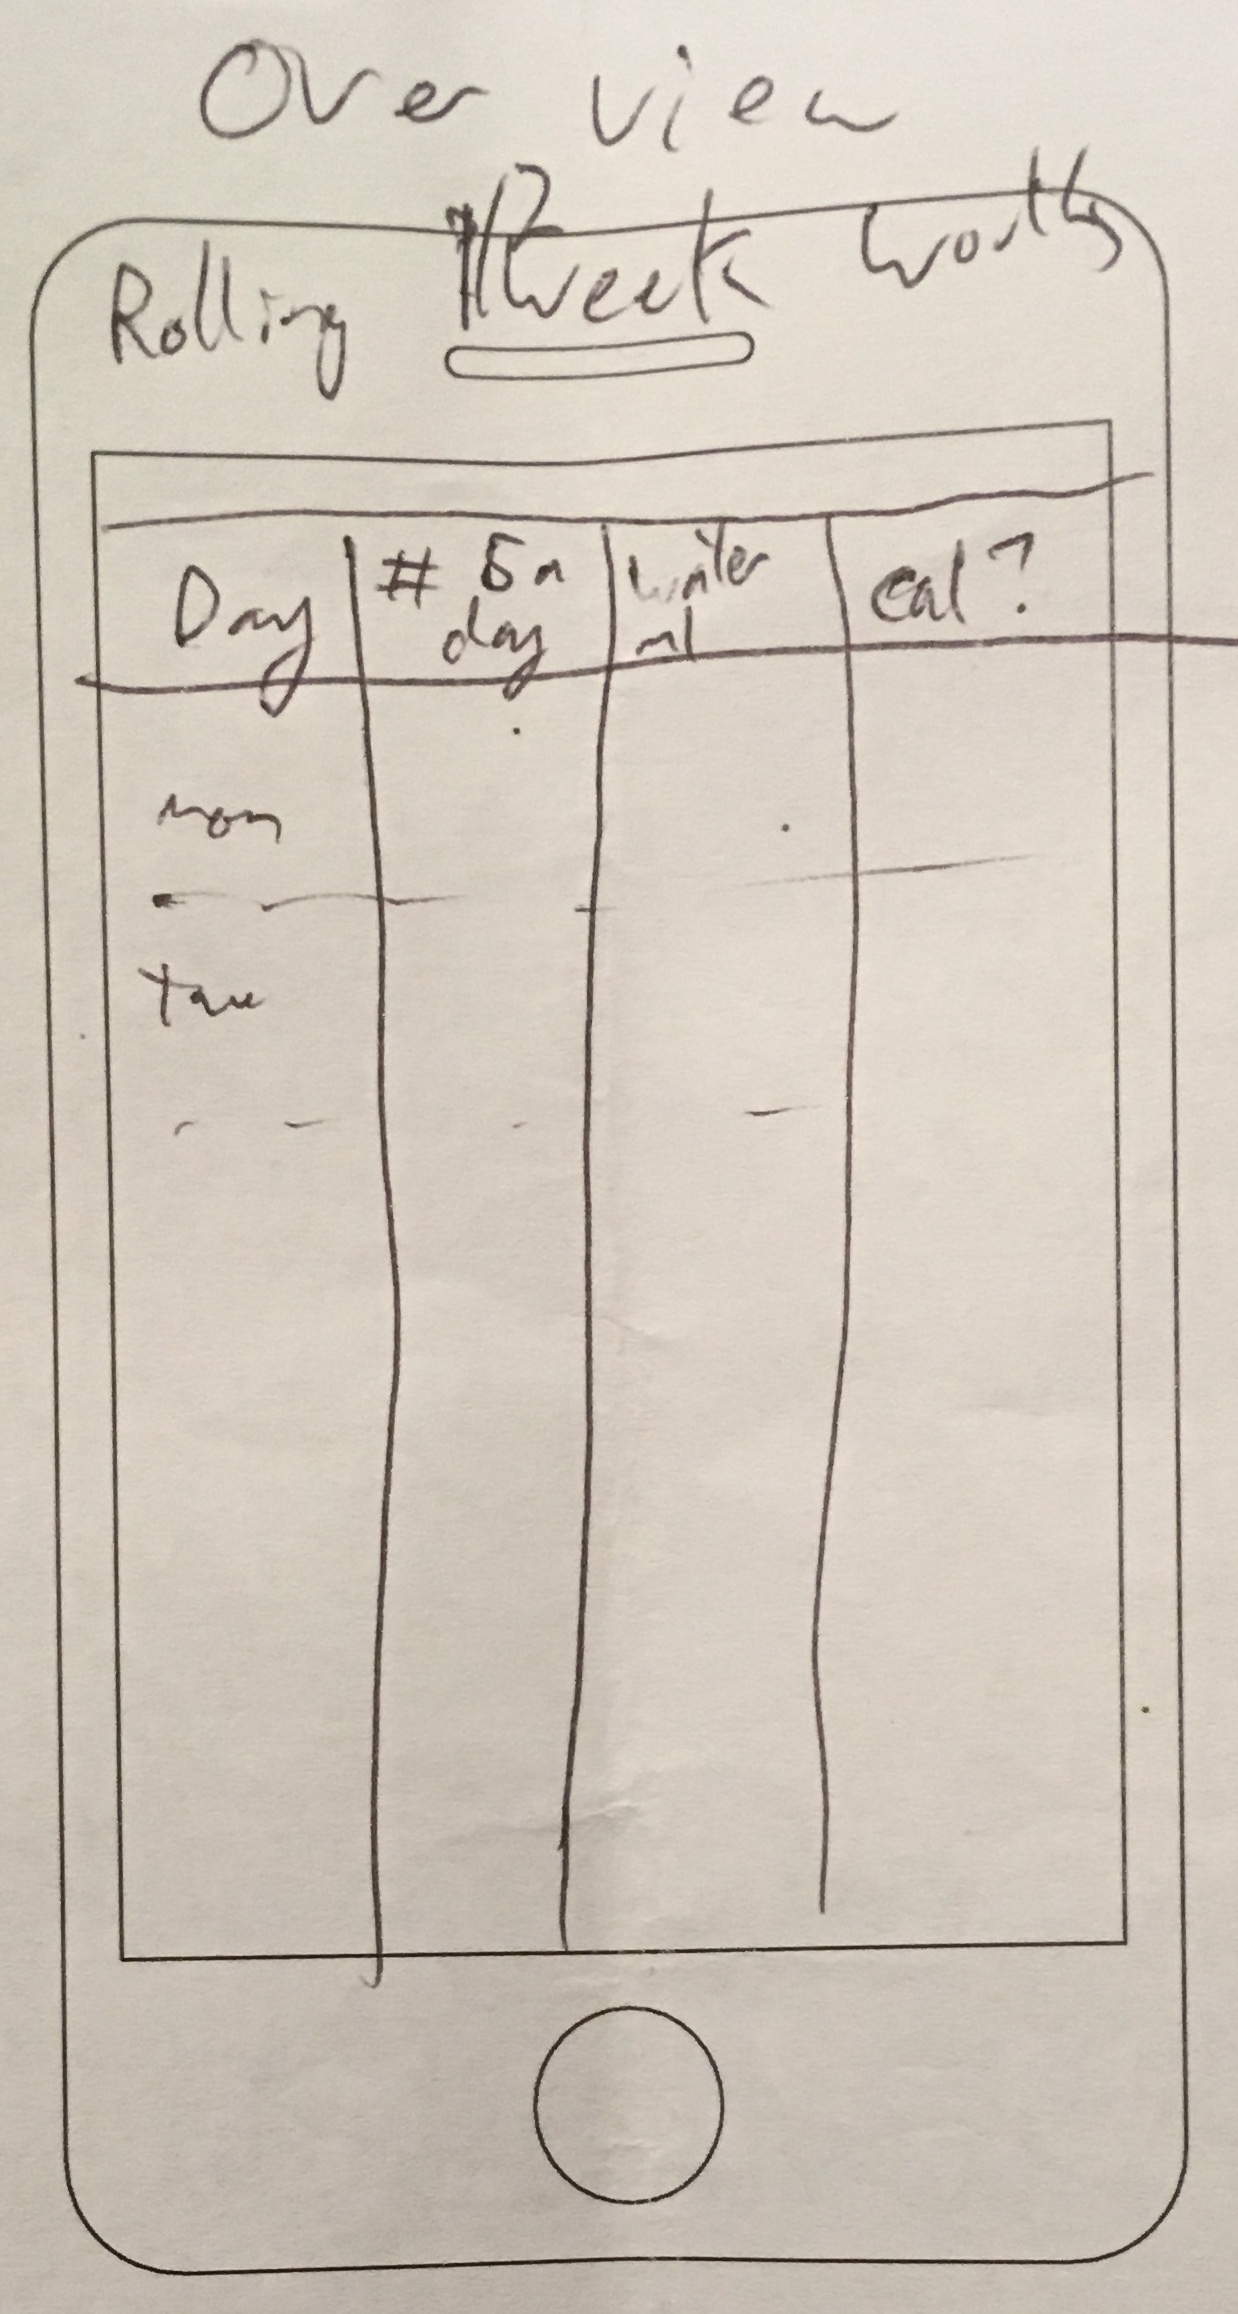 Over view
Rolling week worth
Day
# 5 a
day
water
ml
cal?
mon
tue